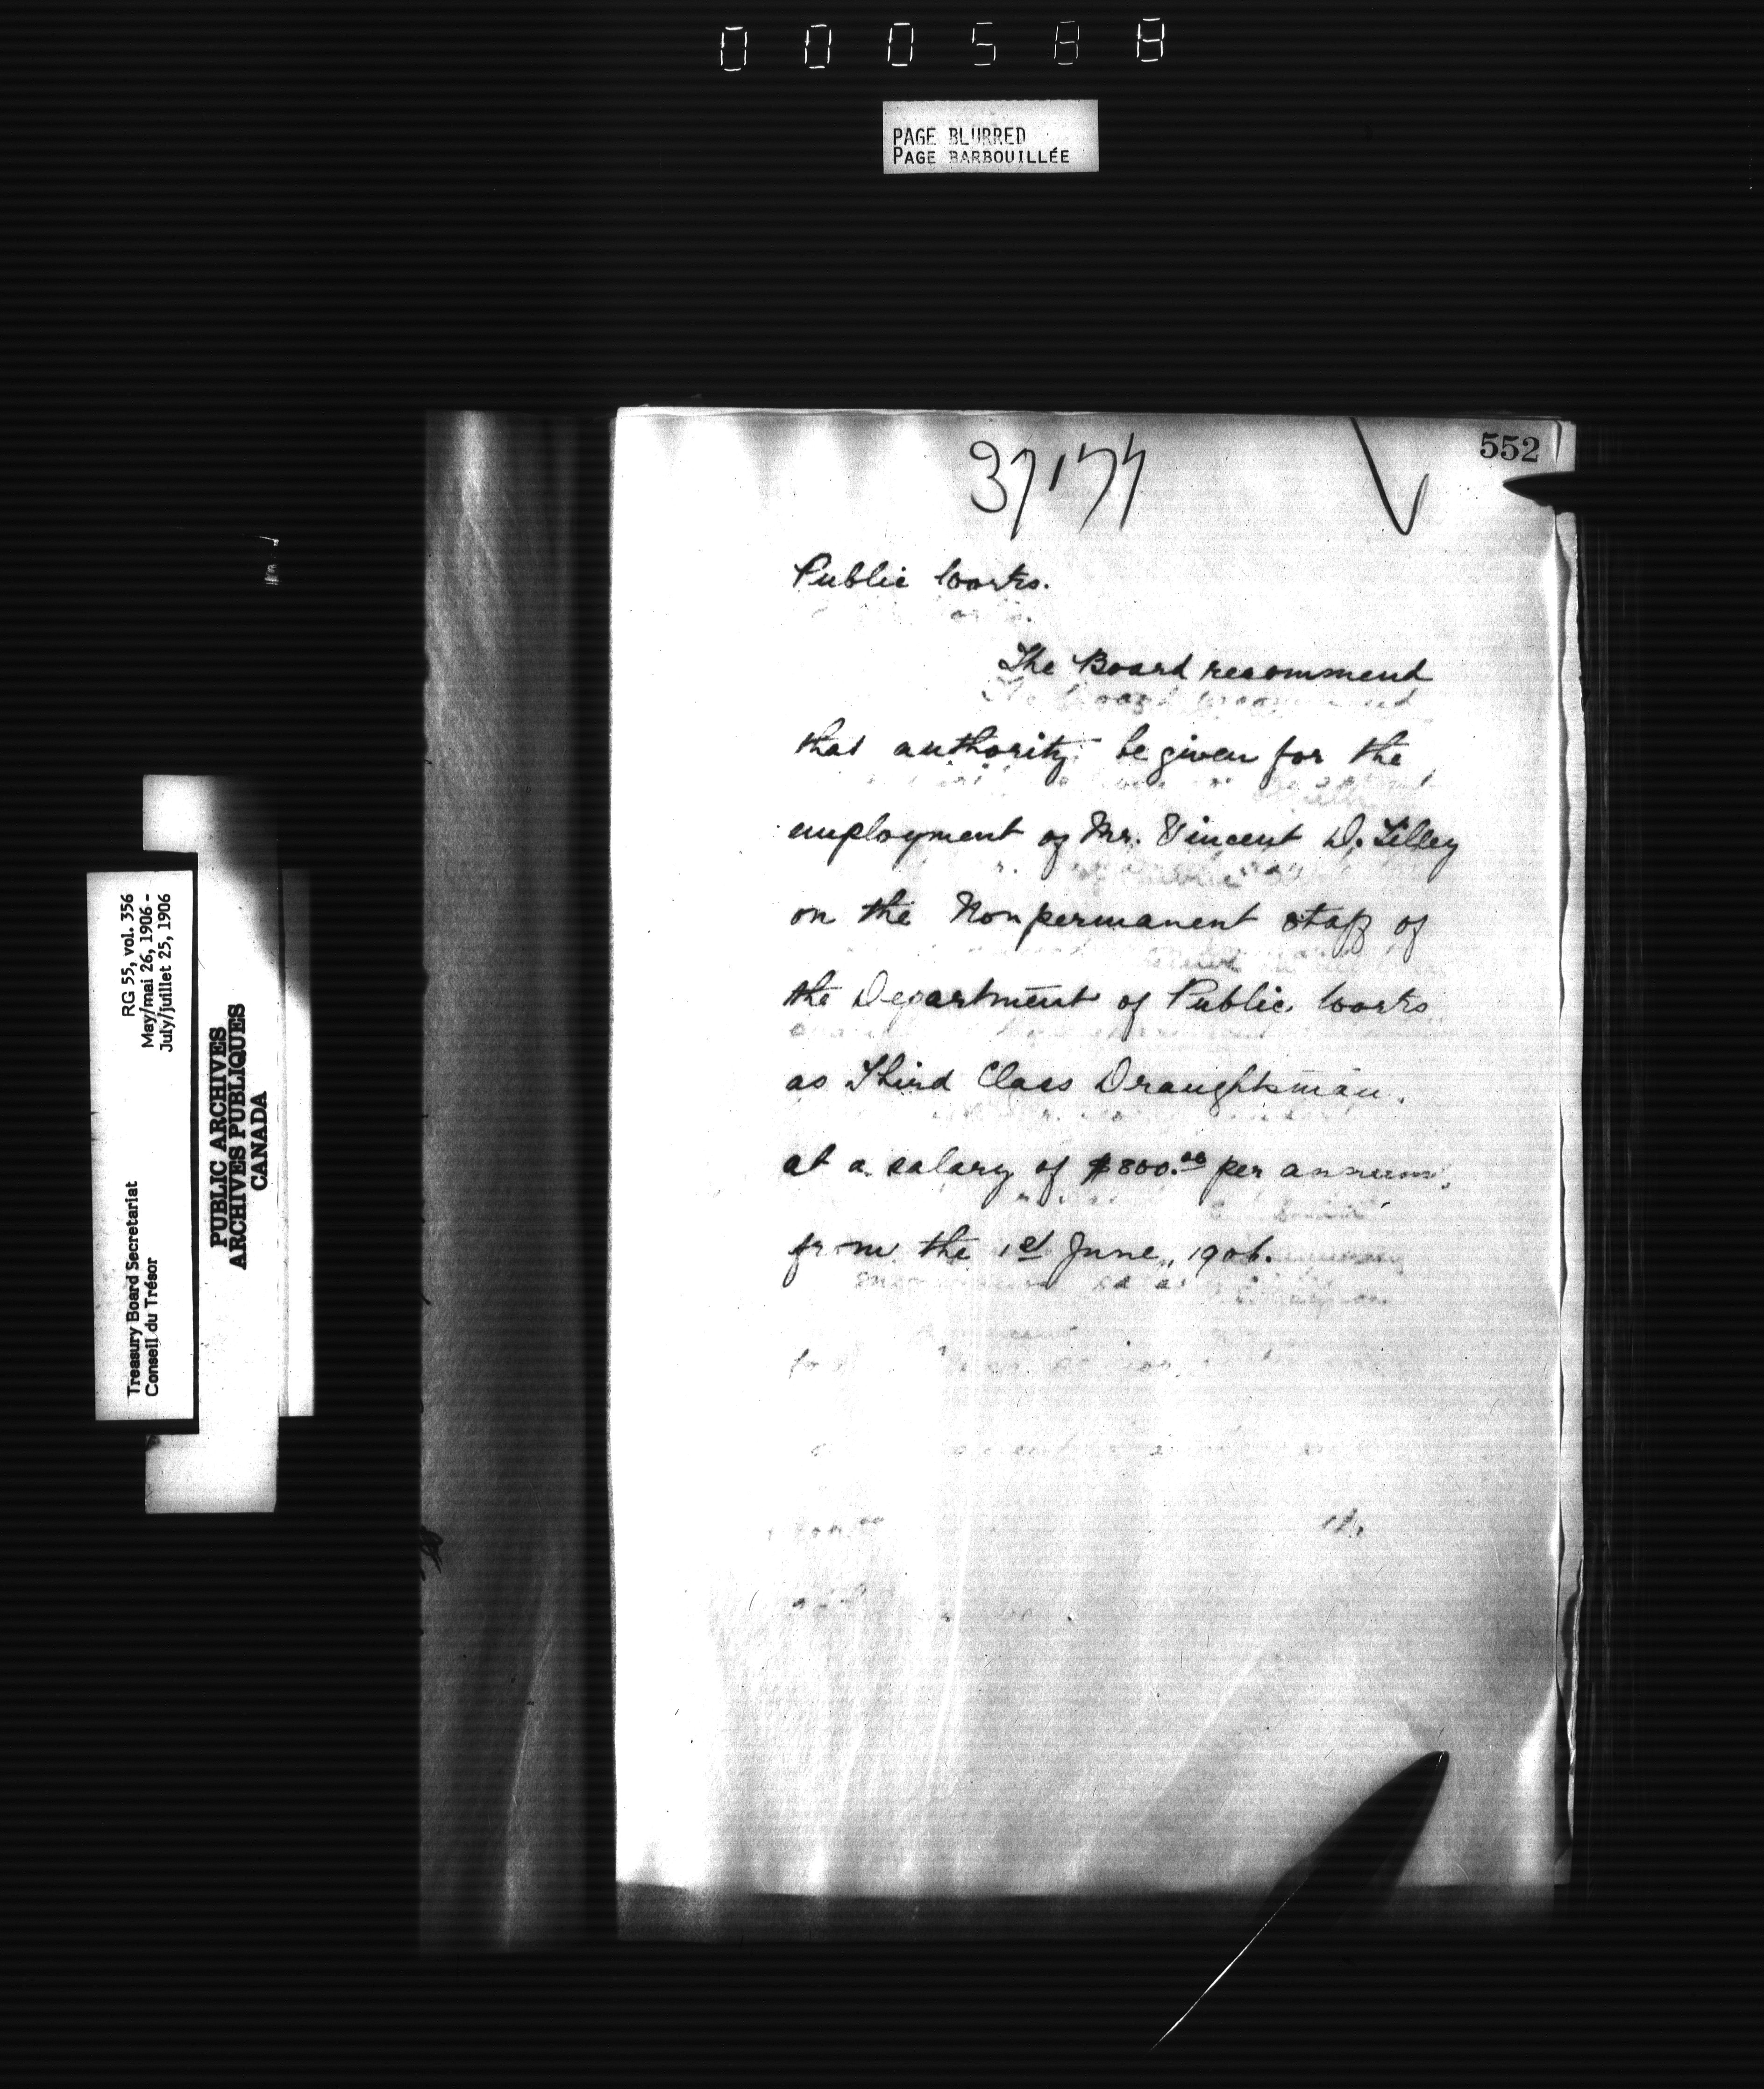 000588
PAGE BLURRED
PAGE BARBOUILLÉE
552
Public Works.
The Board recommend
that authority be given for the
employment of Mr. Vincent D. Lilley
on the Nonpermanent staff of
the Department of Public Works
as Third Class Draughtsman.
at a salary of $800.00 per annum,
from the 1st June, 1906.
RG 55, vol. 356
May/mai 26, 1906 -
July/juillet 25, 1906
Treasury Board Secretariat
Conseil du Trésor
PUBLIC ARCHIVES
ARCHIVES PUBLIQUES
CANADA